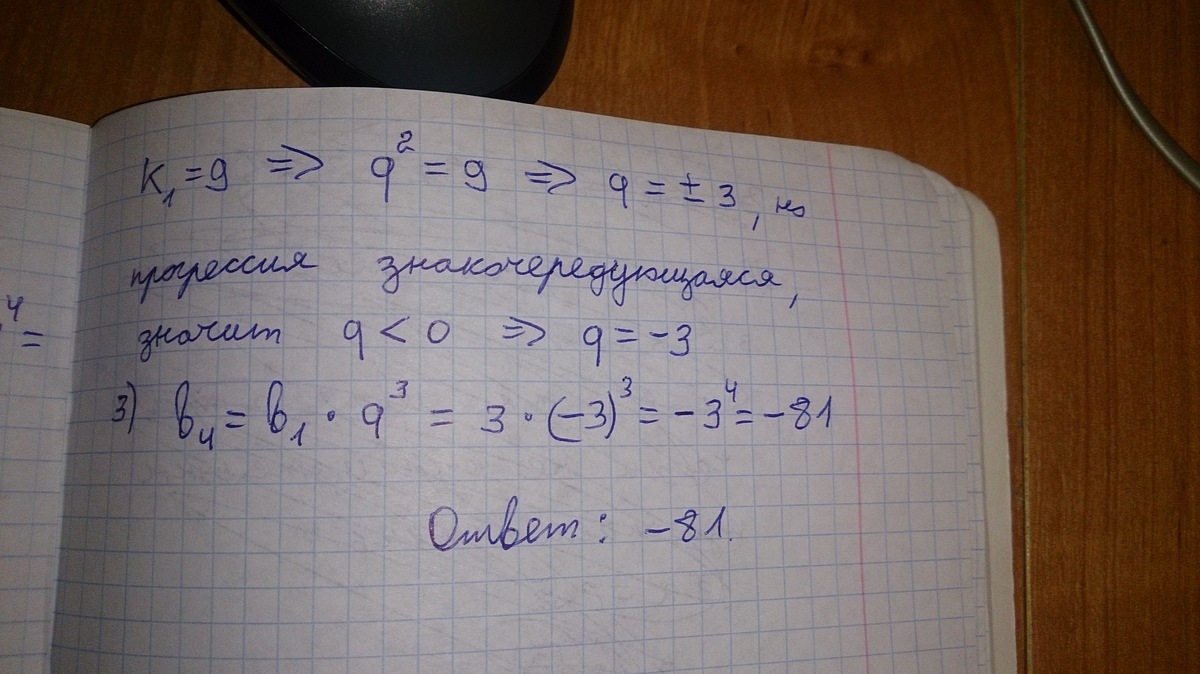 k₁ = 9 => q² = 9 => q = ± 3, но
прогрессия знакочередующаяся,
4 =
значит q < 0 => q = -3
3) b₄ = b₁ · q³ = 3 · (-3)³ = -3⁴ = -81
Ответ: -81.